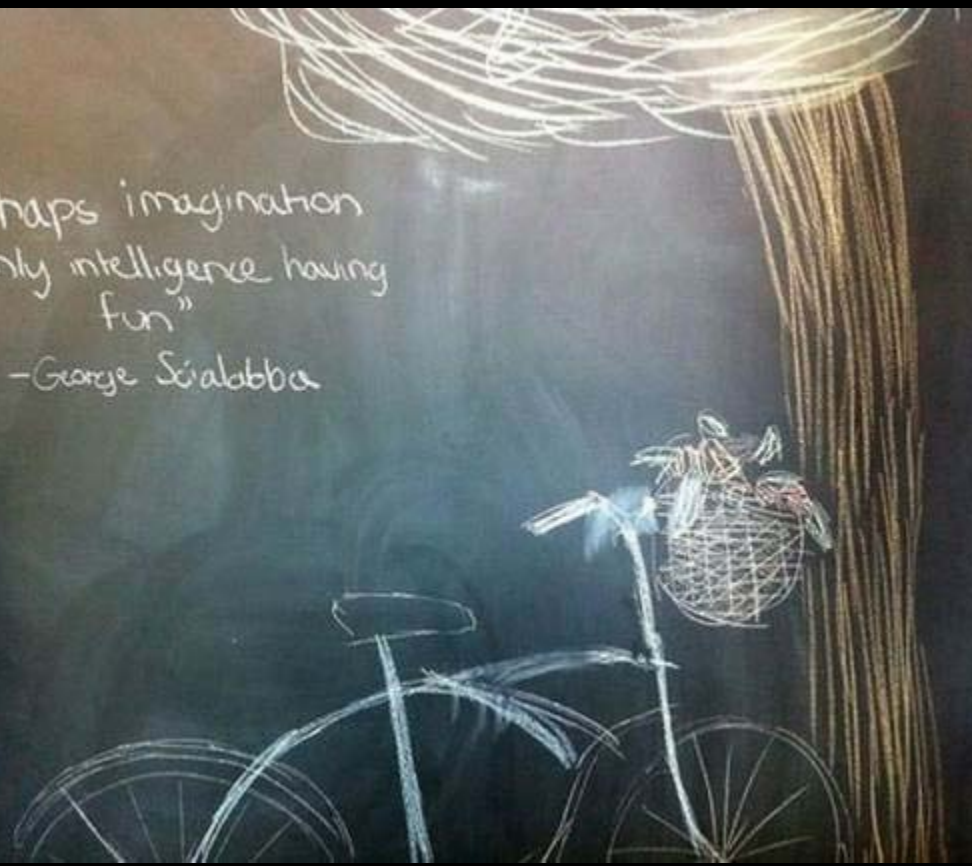 haps imagination
nly intelligence having
fun”
-George Scialabba